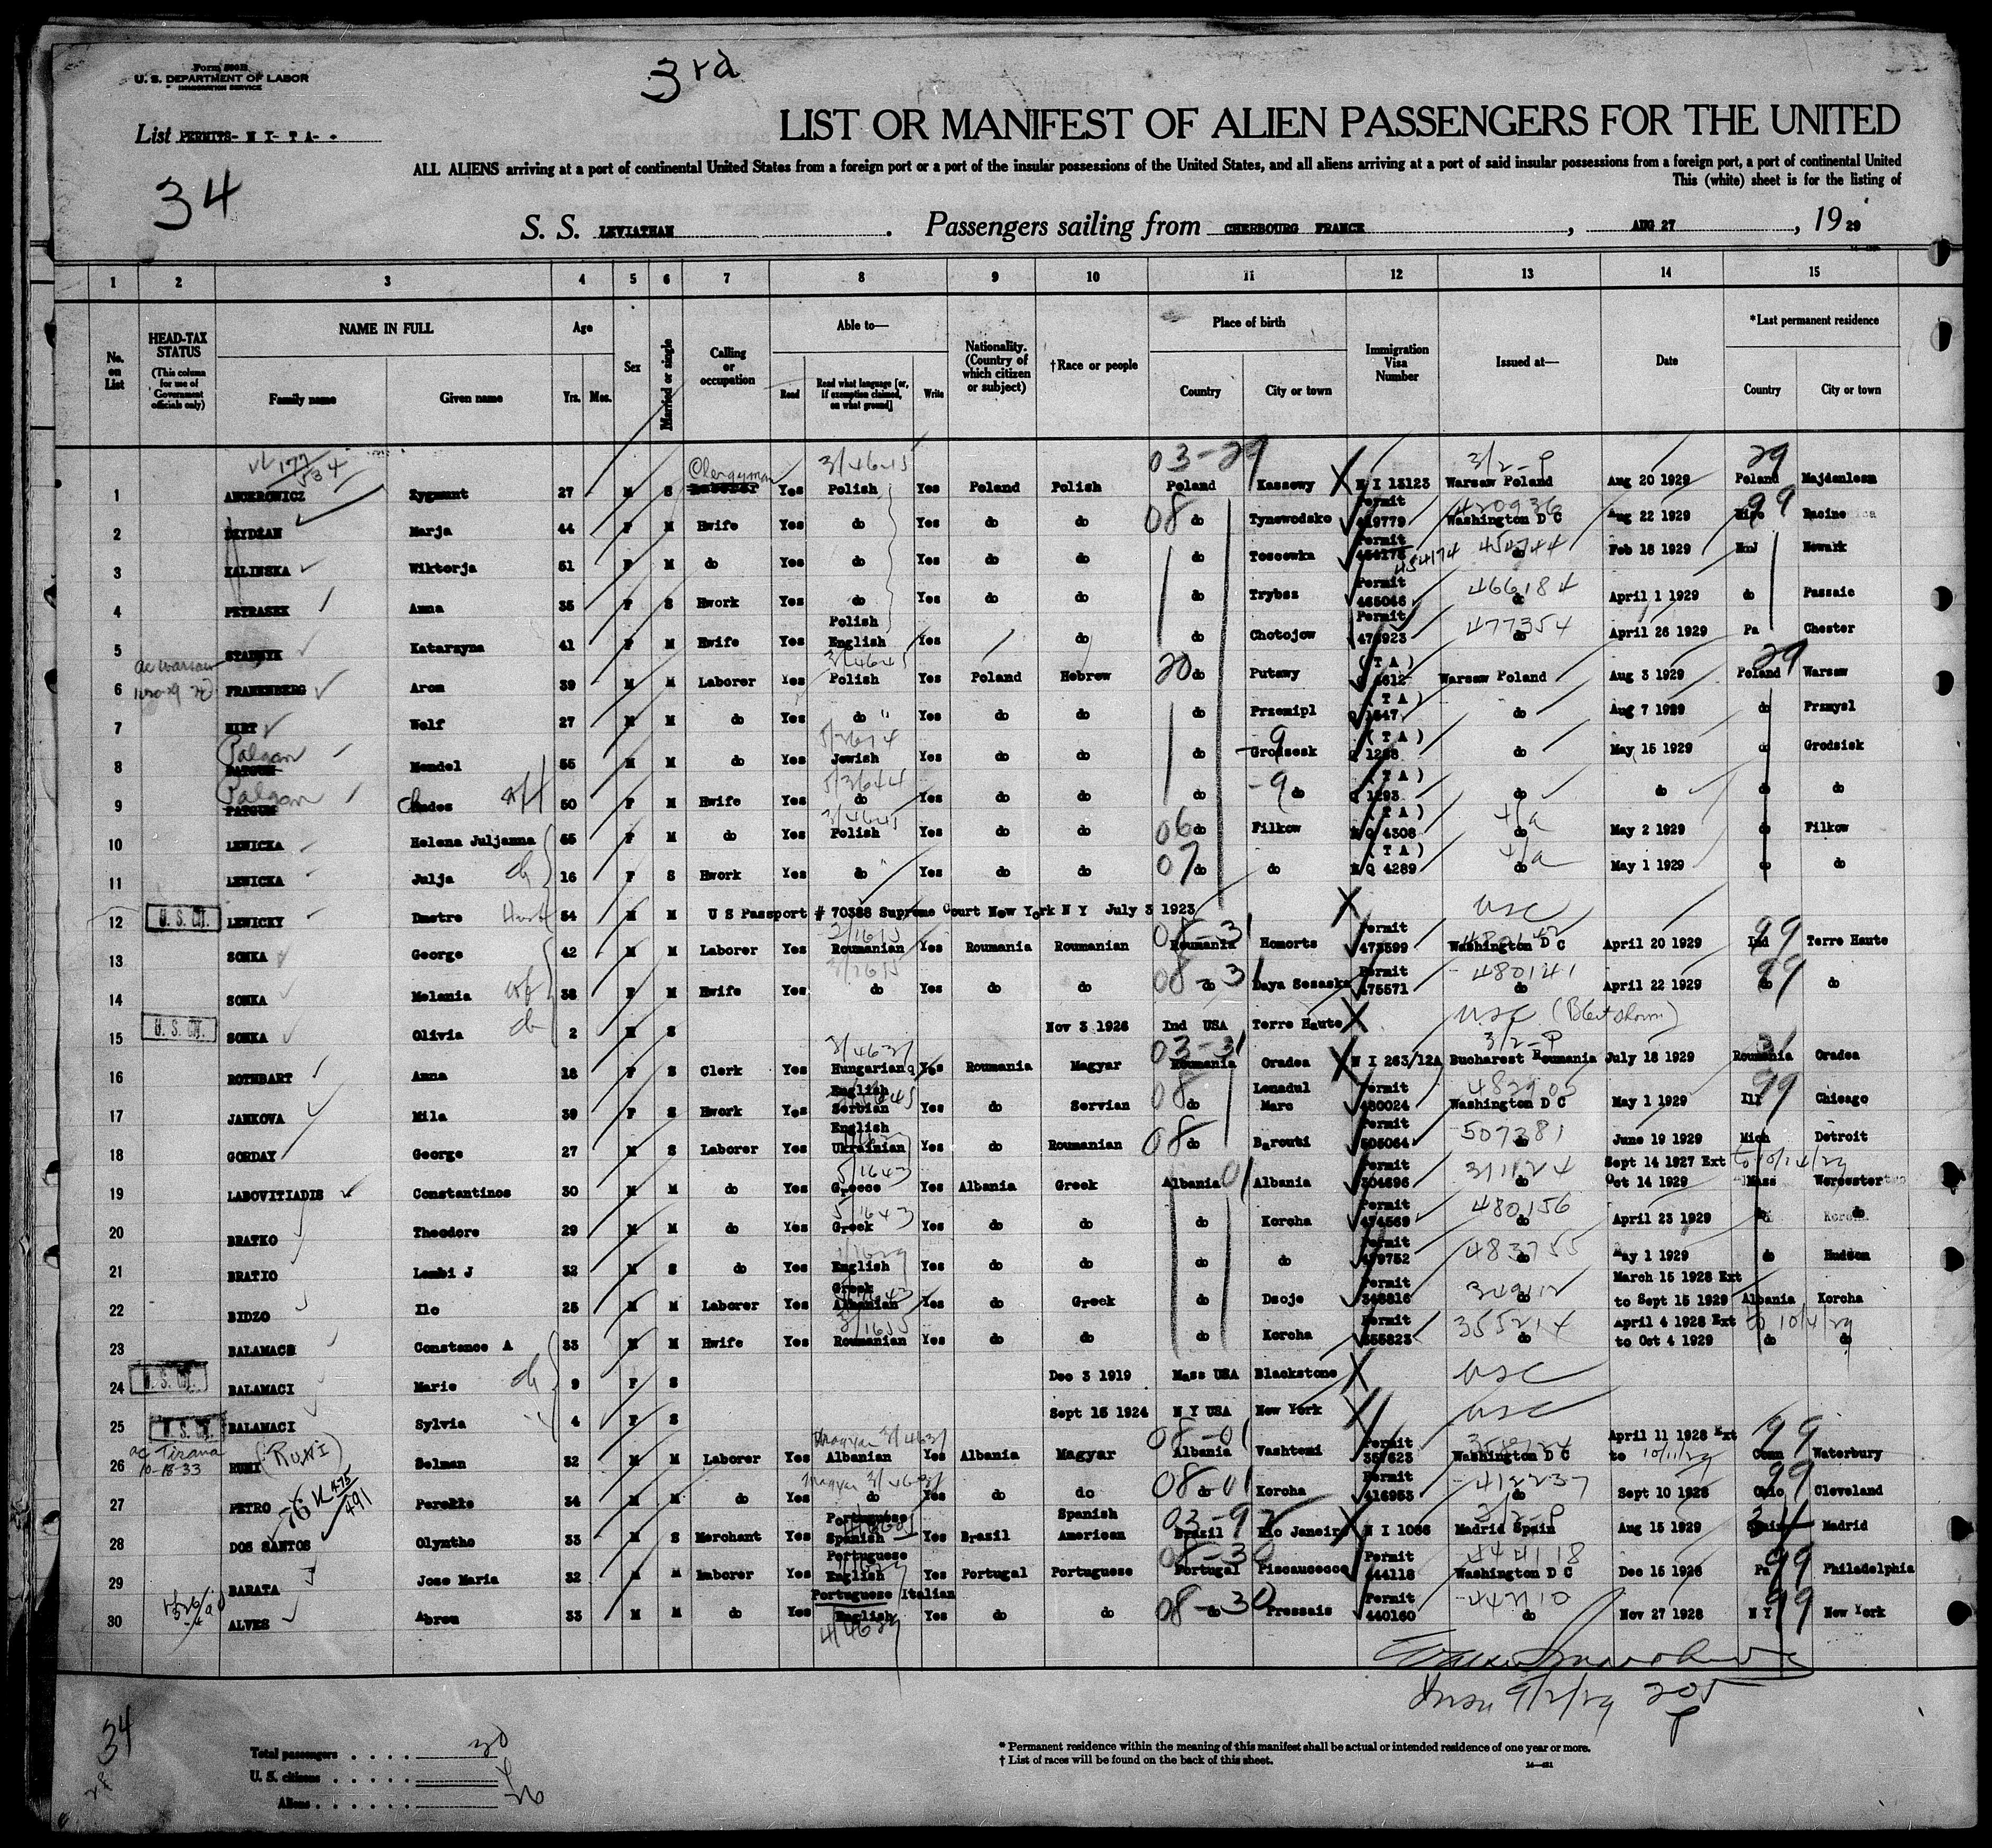 Form 500B
U. S. DEPARTMENT OF LABOR
IMMIGRATION SERVICE
3rd
List PERMITS- N I- T A- -
34
LIST OR MANIFEST OF ALIEN PASSENGERS FOR THE UNITED
ALL ALIENS arriving at a port of continental United States from a foreign port or a port of the insular possessions of the United States, and all aliens arriving at a port of said insular possessions from a foreign port, a port of continental United
This (white) sheet is for the listing of
S. S. LEVIATHAN . Passengers sailing from CHERBOURG FRANCE , AUG 27 , 19 29
1 2 3 4 5 6 7 8 9 10 11 12 13 14 15
No. on List
HEAD-TAX STATUS (This column for use of Government officials only)
NAME IN FULL Family name Given name
Age Yrs. Mos.
Sex
Married or single
Calling or occupation
Able to— Read Read what language [or, if exemption claimed, on what ground] Write
Nationality. (Country of which citizen or subject)
†Race or people
Place of birth Country City or town
Immigration Visa Number
Issued at—
Date
*Last permanent residence Country City or town
177/534 Clergyman 3/4645 03-29 3/2-P 29
1 Zygmunt 27 M S Yes Polish Yes Poland Polish Poland Kassowy N I 13123 Warsaw Poland Aug 20 1929 Poland Majdenlesn
2 Marja 44 F M Hwife Yes do Yes do do 08 do Tynowodsko Permit 419779 420936 Washington D C Aug 22 1929 99 Racine
3 KALINSKA Wiktorja 51 F M do Yes do Yes do do do Toscowka Permit 454174 454744 do Feb 18 1929 NJ Newark
4 PETRASEK Anna 35 F S Hwork Yes do Yes do do do Trybsz Permit 465046 466184 do April 1 1929 do Passaic
5 Katarzyna 41 F M Hwife Yes Polish English Yes do do Chotojow Permit 476923 477354 do April 26 1929 Pa Chester
ac Warsaw
6 FRANENBERG Aron 39 M M Laborer Yes 3/4645 Polish Yes Poland Hebrew 20 do Putawy (T A) 4612 Warsaw Poland Aug 3 1929 29 Poland Warsaw
7 HIRT Wolf 27 M M do Yes do " Yes do do do Przemipl (T A) Q 1547 do Aug 7 1929 do Przmysl
8 Palgon Mendel 55 M M do Yes Jewish Yes do do do Grodsesk (T A) do May 15 1929 do Grodzisk
9 Palgon wf 50 F M Hwife Yes 5/3644 do Yes do do do do (T A) Q 1293 do do do do
10 LEWICKA Helena Juljanna 55 F M do Yes 3/4645 Polish Yes do do 06 do Filkow (T A) N Q 4308 4/a do May 2 1929 do Filkow
11 LEWICKA Julja ch 16 F S Hwork Yes do " Yes do do 07 do do (T A) N Q 4289 4/a do May 1 1929 do do
12 U. S. CIT. LEWICKY Dmetro 54 M M U S Passport # 70388 Supreme Court New York N Y July 3 1923 X USC
13 SONKA George 42 M M Laborer Yes Roumanian Yes Roumania Roumanian Roumania Homorts Permit 473599 Washington D C April 20 1929 99 Ind Terre Haute
14 SONKA Melania wf 38 F M Hwife Yes do Yes do do 08-31 do Daya Sesaska Permit 475571 480141 do April 22 1929 99 do do
15 U. S. CIT. SONKA Olivia ch 2 M S Nov 3 1926 Ind USA Terre Haute X USC (B Cert shown)
16 ROTHBART Anna 18 F S Clerk Yes 3/4631 Hungarian Yes Roumania Magyar 03-31 Roumania Oradea N I 263/12A 3/2-P Bucharest Roumania July 18 1929 31 Roumania Oradea
17 JANKOVA Mila 39 F S Hwork Yes English Serbian Yes do Servian 08 do Lenadul Marc Permit 480024 Washington D C May 1 1929 99 Ill Chicago
18 GORDAY George 27 M S Laborer Yes English Ukrainian Yes do Roumanian 08 do Barouti Permit 505064 507281 do June 19 1929 Mich Detroit
19 LABOVITIADIS Constantinos 30 M M do Yes 5/1643 Greece Yes Albania Greek Albania 01 Albania Permit 304696 311124 do Sept 14 1927 Ext to 10/14/29 Oct 14 1929 Mass Worcester
20 BRATKO Theodore 29 M M do Yes 5/1643 Greek Yes do do do Korcha Permit 474569 480156 do April 23 1929 do do
21 BRATIO Lambi J 32 M S do Yes English Yes do do do do Permit 479752 483755 do May 1 1929 do Hudson
22 BIDZO Ilo 25 M M Laborer Yes Greek Albanian Yes do Greek do Dsoje Permit 348816 do March 15 1928 Ext to Sept 15 1929 Albania Korcha
23 BALAMACE Constance A 33 M M Hwife Yes 3/1635 Roumanian Yes do do do Korcha Permit 355823 355214 do April 4 1928 Ext to 10/4/29 to Oct 4 1929 do do
24 U. S. CIT. BALAMACI Marie ch 9 F S Dec 3 1919 Mass USA Blackstone X USC
25 U. S. CIT. BALAMACI Sylvia " 4 F S Sept 15 1924 N Y USA New York X USC
ac Tirana 10-18-33
26 RUMI (RUMI) Selman 32 M M Laborer Yes Magyar 3/4631 Albanian Yes Albania Magyar 08-01 Albania Vashtemi Permit 357623 Washington D C April 11 1928 Ext to 10/11/29 99 Conn Waterbury
27 PETRO 34 M M do Yes Magyar 3/4631 do Yes do do 08-01 do Korcha Permit 416953 412237 do Sept 10 1928 99 Ohio Cleveland
28 DOS SANTOS Olyntho 33 M S Merchant Yes Portuguese Spanish Yes Brazil Spanish American Brazil Rio Janeiro N I 1066 3/2-P Madrid Spain Aug 15 1929 Spain Madrid
29 BARATA Jose Maria 32 M M Laborer Yes Portuguese English Yes Portugal Portuguese 08-30 Portugal Piscaucecce Permit 444118 444118 Washington D C Dec 15 1928 99 Pa Philadelphia
30 ALVES Abreu 33 M M do Yes Portuguese Italian English Yes do do 08-30 do Pressais Permit 440160 do Nov 27 1928 99 N Y New York
9/2/29 205 P
34
Total passengers . . . . 30
U. S. citizens . . . . . 4
Aliens . . . . . . 26
* Permanent residence within the meaning of this manifest shall be actual or intended residence of one year or more.
† List of races will be found on the back of this sheet.